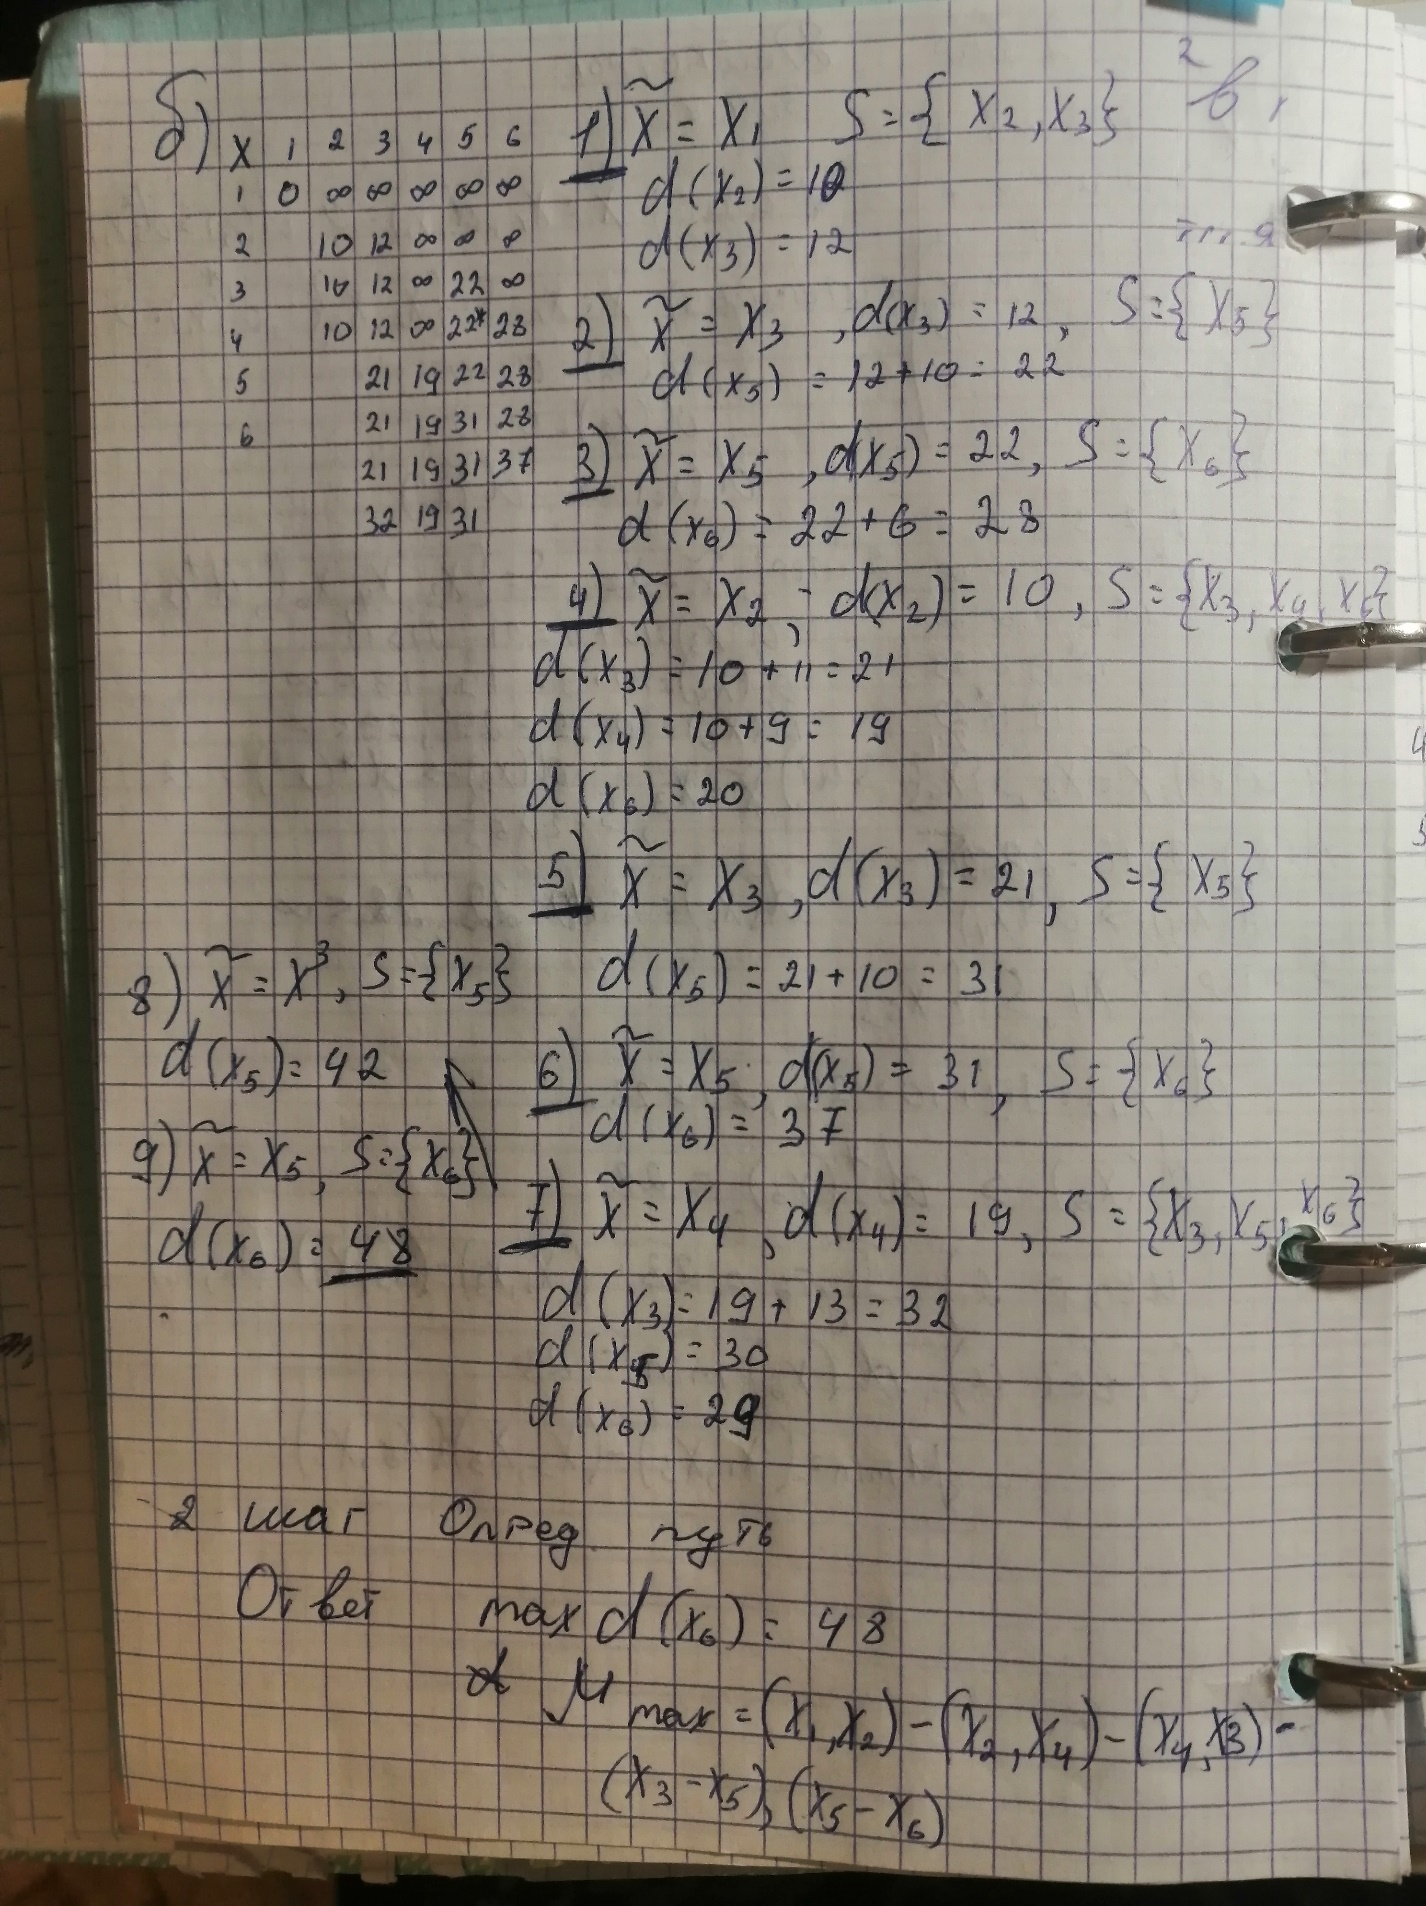 б)
X 1 2 3 4 5 6
1 0 ∞ ∞ ∞ ∞ ∞
2 10 12 ∞ ∞ ∞
3 10 12 ∞ 22 ∞
4 10 12 ∞ 22* 28
5 21 19 22 28
6 21 19 31 28
21 19 31 37
32 19 31
1) X̃ = X₁ S = { X₂, X₃}
d(x₂) = 10
d(x₃) = 12
2) X̃ = X₃, d(x₃) = 12, S = { X₅}
d(x₅) = 12+10 = 22
3) X̃ = X₅, d(x₅) = 22, S = {X₆}
d(x₆) = 22+6 = 28
4) X̃ = X₂, d(x₂) = 10, S = {X₃, X₄, X₆}
d(x₃) = 10 + 11 = 21
d(x₄) = 10+9 = 19
d(x₆) = 20
5) X̃ = X₃, d(x₃) = 21, S = { X₅}
d(x₅) = 21+10 = 31
6) X̃ = X₅, d(x₅) = 31, S = {X₆}
d(x₆) = 37
7) X̃ = X₄, d(x₄) = 19, S = {X₃, X₅, X₆}
d(x₃) = 19 + 13 = 32
d(x₅) = 30
d(x₆) = 29
8) X̃ = X³, S = {X₅}
d(x₅) = 42
9) X̃ = X₅, S = {X₆}
d(x₆) = 48
2 шаг Опред. путь
Ответ max d(x₆) = 48
μ max = (X₁, X₂) – (X₂, X₄) – (X₄, X3) –
(X₃ – X₅), (X₅ – X₆)